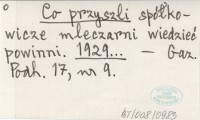 Co przyszli spółko-
wicze mleczarni wiedzieć
powinni. 1929... — Gaz.
Podh. 17, nr 9.
AT/008/0983